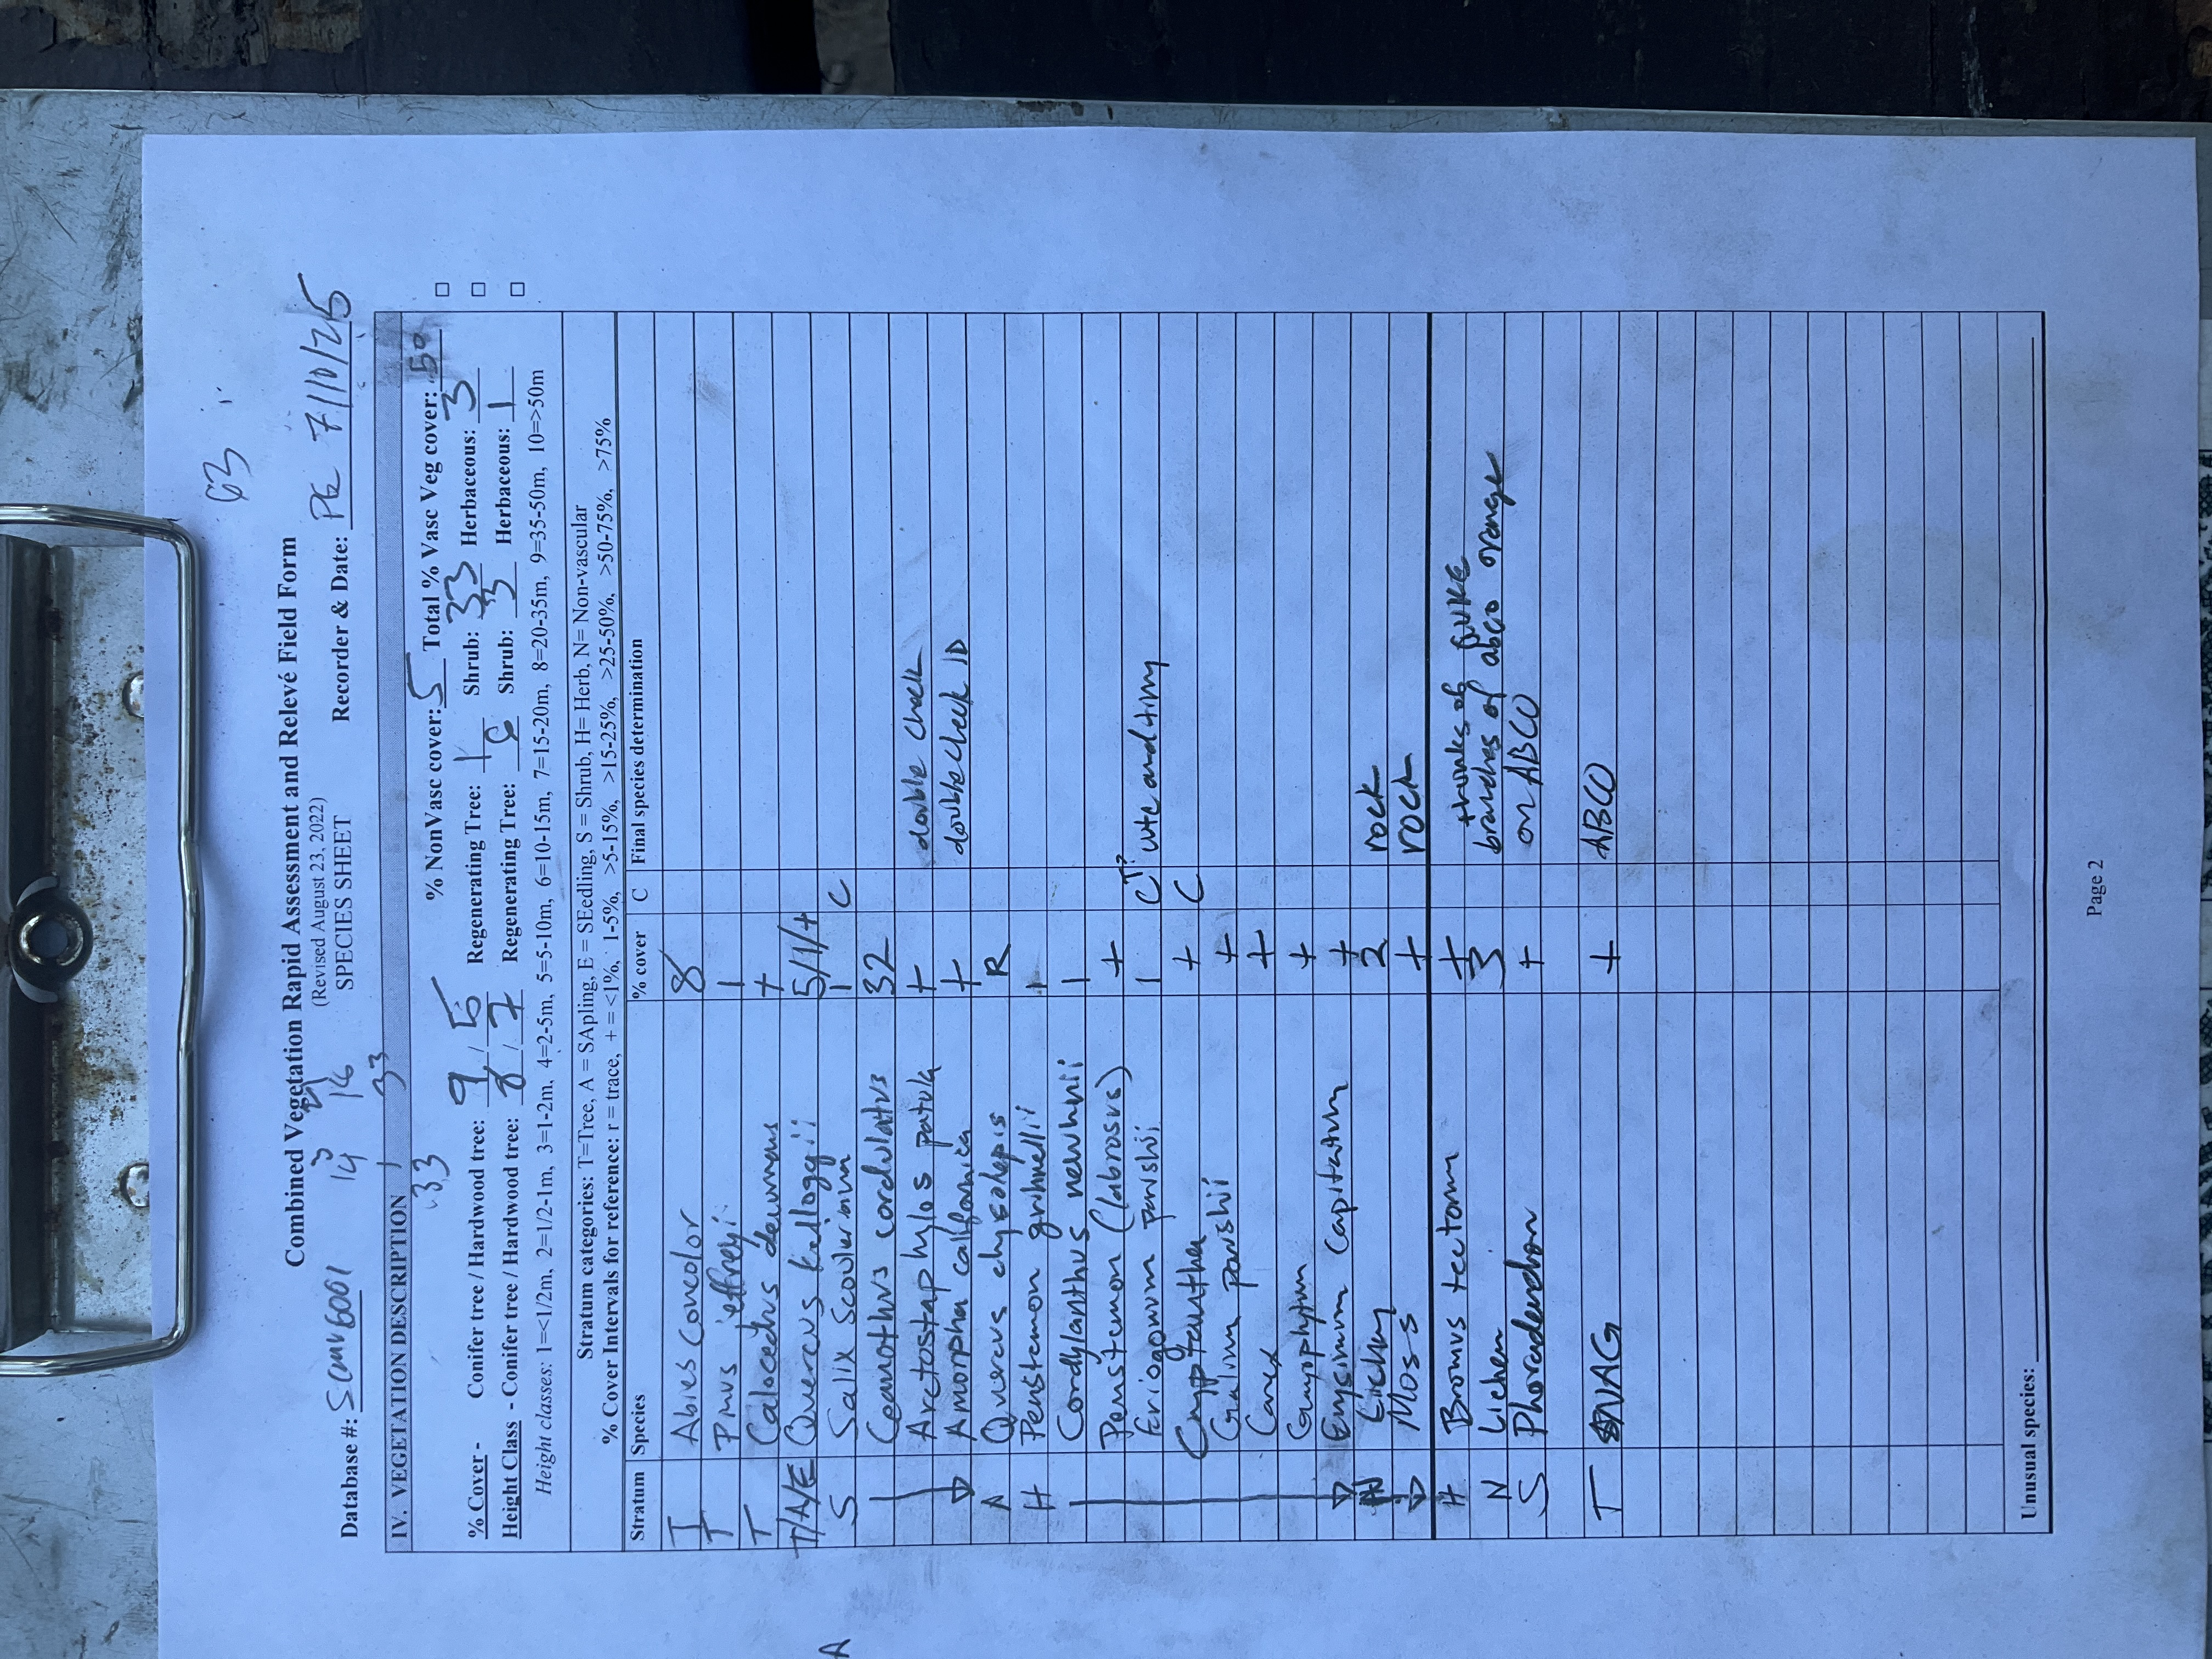 63
Combined Vegetation Rapid Assessment and Relevé Field Form
(Revised August 23, 2022)
SPECIES SHEET
Database #: Recorder & Date: PG 7/10/25
3 21
14 16
33
IV. VEGETATION DESCRIPTION
33
% NonVasc cover: 5 Total % Vasc Veg cover: 50
% Cover - Conifer tree / Hardwood tree: 9 / 5 Regenerating Tree: 1 Shrub: 33 Herbaceous: 3
Height Class - Conifer tree / Hardwood tree: 8 / 7 Regenerating Tree: Shrub: 3 Herbaceous: 1
Height classes: 1=<1/2m, 2=1/2-1m, 3=1-2m, 4=2-5m, 5=5-10m, 6=10-15m, 7=15-20m, 8=20-35m, 9=35-50m, 10=>50m
Stratum categories: T=Tree, A = SApling, E = SEedling, S = Shrub, H= Herb, N= Non-vascular
% Cover Intervals for reference: r = trace, + = <1%, 1-5%, >5-15%, >15-25%, >25-50%, >50-75%, >75%
Stratum Species % cover C Final species determination
T Abies concolor 8
T Pinus jeffreyi 1
T Calocedrus decurrens +
T/A/E Quercus kelloggii 5/1/+
S Salix scouleriana 1 C
Ceanothus cordulatus 32
Arctostaphylos patula + double check
Amorpha californica + double check ID
A Quercus chysolepis R
H Penstemon grinnellii 1
Cordylanthus nevinnii 1
Penstemon (labrosus) +
Eriogonum parishii 1 C T? cute and tiny
Cryptantha + C
Galium parishii +
Carex +
Gayophytum +
Erysimum capitatum +
N Lichen 2 rock
Moss + rock
H Bromus tectorum +
trunks of QUKE
N Lichen 3 branches of abco orange
S Phoradendron + on ABCO
T SNAG + ABCO
Unusual species:
Page 2
A